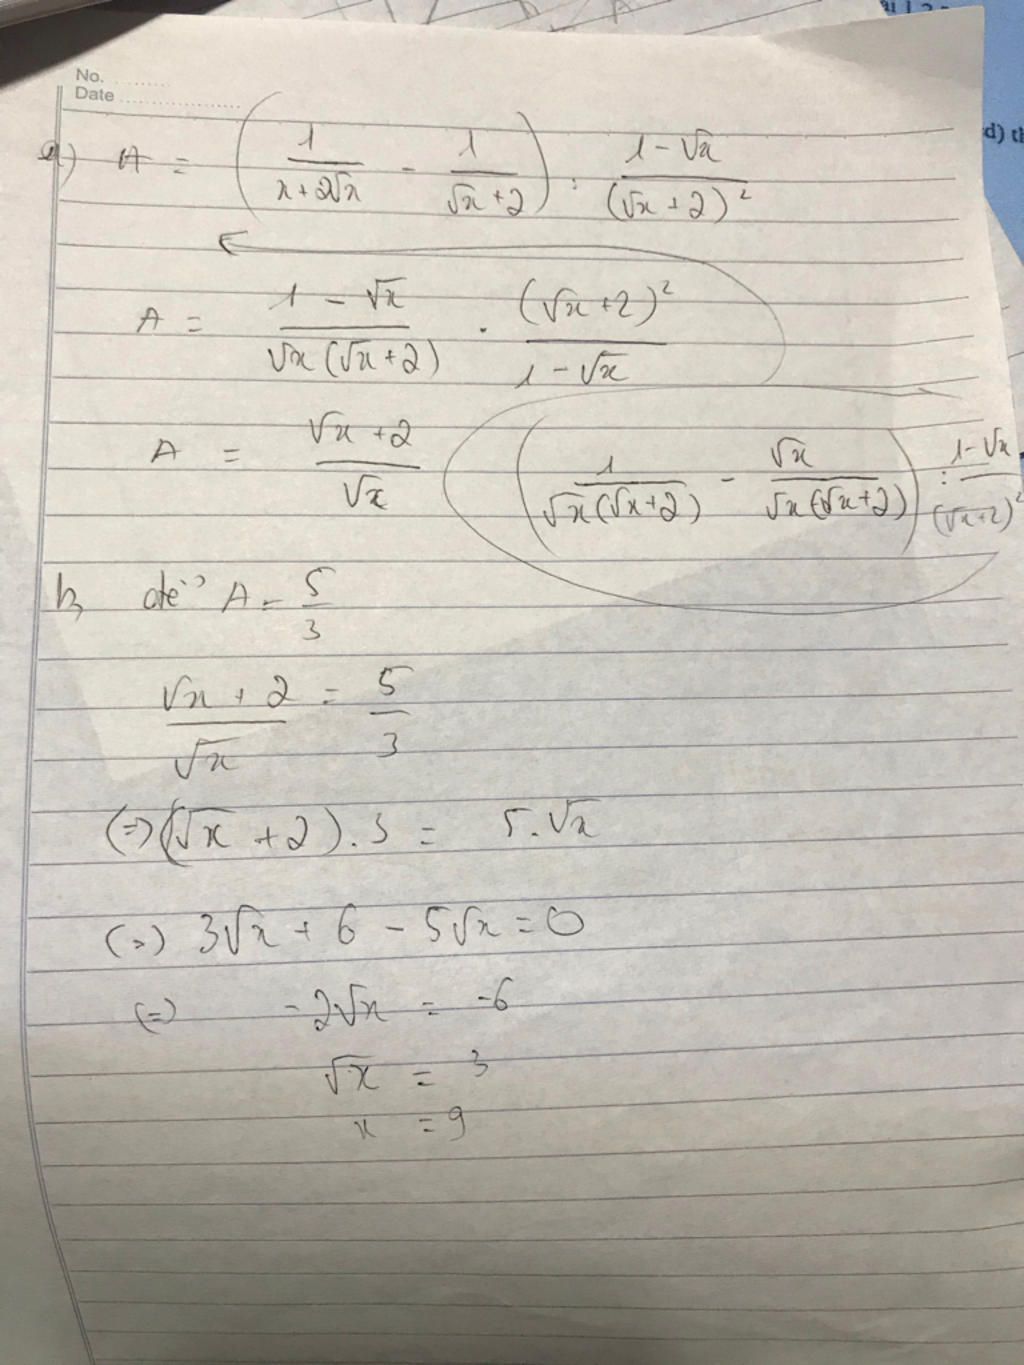 No. ........
Date ....................
d) th
a) A = (1/(x+2√x) - 1/(√x+2)) : (1-√x)/(√x+2)²
A = (1-√x)/(√x(√x+2)) . (√x+2)²/(1-√x)
A = (√x+2)/√x
(1/(√x(√x+2)) - √x/(√x(√x+2))) : (1-√x)/(√x+2)²
b, để A = 5/3
(√x+2)/√x = 5/3
(=) (√x+2).3 = 5.√x
(=) 3√x + 6 - 5√x = 0
(=) -2√x = -6
√x = 3
x = 9